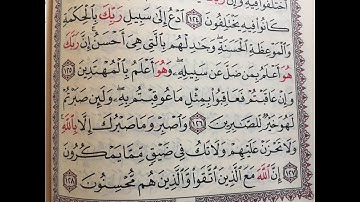 ٱخۡتَلَفُوا۟ فِيهِ وَإِنَّ رَبَّكَ
كَانُوا۟ فِيهِ يَخۡتَلِفُونَ ١٢٤ ٱدۡعُ إِلَىٰ سَبِيلِ رَبِّكَ بِٱلۡحِكۡمَةِ
وَٱلۡمَوۡعِظَةِ ٱلۡحَسَنَةِ وَجَٰدِلۡهُم بِٱلَّتِي هِيَ أَحۡسَنُ إِنَّ رَبَّكَ
هُوَ أَعۡلَمُ بِمَن ضَلَّ عَن سَبِيلِهِۦ وَهُوَ أَعۡلَمُ بِٱلۡمُهۡتَدِينَ ١٢٥
وَإِنۡ عَاقَبۡتُمۡ فَعَاقِبُوا۟ بِمِثۡلِ مَا عُوقِبۡتُم بِهِۦ وَلَئِن صَبَرۡتُمۡ
لَهُوَ خَيۡرٌ لِّلصَّٰبِرِينَ ١٢٦ وَٱصۡبِرۡ وَمَا صَبۡرُكَ إِلَّا بِٱللَّهِ
وَلَا تَحۡزَنۡ عَلَيۡهِمۡ وَلَا تَكُ فِي ضَيۡقٍ مِّمَّا يَمۡكُرُونَ
١٢٧ إِنَّ ٱللَّهَ مَعَ ٱلَّذِينَ ٱتَّقَوا۟ وَّٱلَّذِينَ هُم مُّحۡسِنُونَ ١٢٨